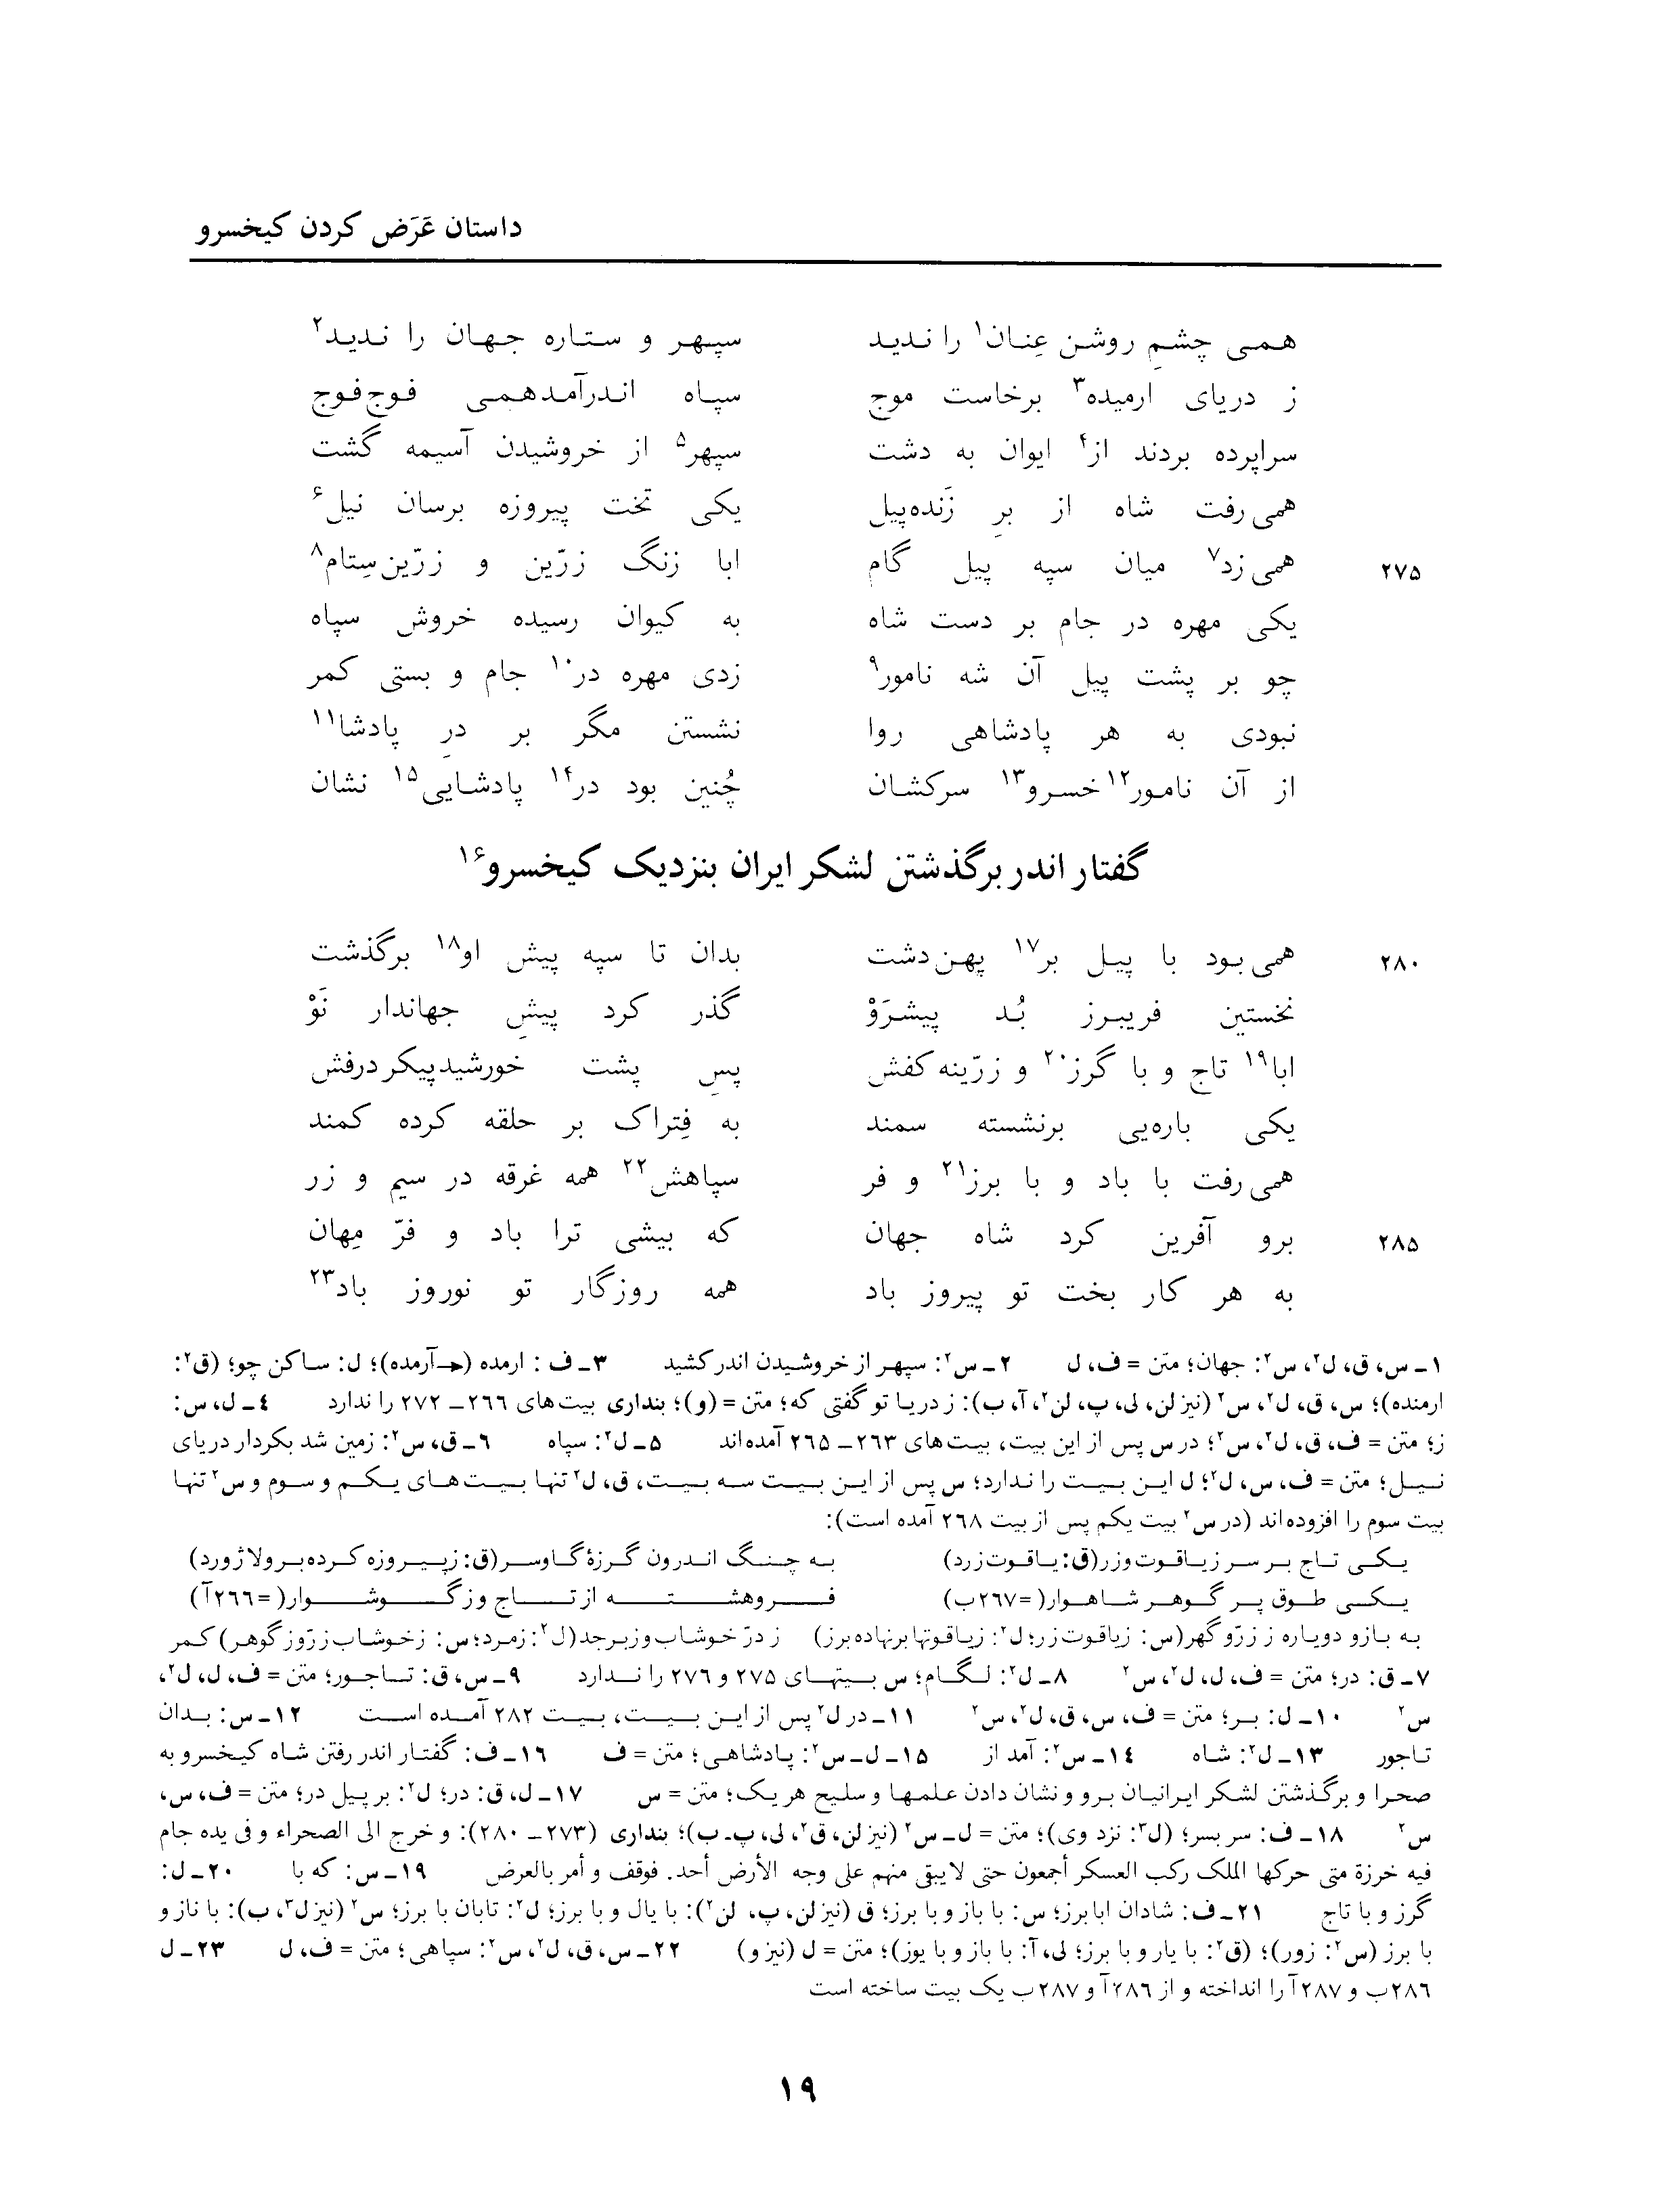 داستان عَرَض کردن کیخسرو
همی چشمِ روشن عِنان۱ را ندید سپهر و ستاره جهان را ندید۲
ز دریای ارمیده۳ برخاست موج سپاه اندرآمدهمی فوج‌فوج
سراپرده بردند از۴ ایوان به دشت سپهر۵ از خروشیدن آسیمه گشت
همی‌رفت شاه از برِ زَنده‌پیل یکی تخت پیروزه برسان نیل۶
۲۷۵ همی‌زد۷ میان سپه پیل گام ابا زنگ زرّین و زرّین‌سِتام۸
یکی مهره در جام بر دست شاه به کیوان رسیده خروش سپاه
چو بر پشت پیل آن شه نامور۹ زدی مهره در۱۰ جام و بستی کمر
نبودی به هر پادشاهی روا نشستن مگر بر درِ پادشا۱۱
از آن نامور۱۲ خسرو۱۳ سرکشان چُنین بود در۱۴ پادشایی۱۵ نشان
گفتار اندر برگذشتن لشکر ایران بنزدیک کیخسرو۱۶
۲۸۰ همی‌بود با پیل بر۱۷ پهن‌دشت بدان تا سپه پیش او۱۸ برگذشت
نخستین فریبرز بُد پیشرَوْ گذر کرد پیشِ جهاندار نَوْ
ابا۱۹ تاج و با گرز۲۰ و زرّینه‌کفش پسِ پشت خورشیدپیکر درفش
یکی باره‌یی برنشسته سمند به فِتراک بر حلقه کرده کمند
همی‌رفت با باد و با برز۲۱ و فر سپاهش۲۲ همه غرقه در سیم و زر
۲۸۵ برو آفرین کرد شاه جهان که بیشی ترا باد و فرّ مِهان
به هر کار بخت تو پیروز باد همه روزگار تو نوروز باد۲۳
۱ـ س، ق، ل۲، س۲: جهان؛ متن = ف، ل ۲ـ س۲: سپهر از خروشیدن اندر کشید ۳ـ ف : ارمده (←آرمده)؛ ل: ساکن چو؛ (ق۲:
ارمنده)؛ س، ق، ل۲، س۲ (نیز لن، لی، پ، لن۲، آ، ب): ز دریا تو گفتی که؛ متن = (و)؛ بنداری بیت‌های ۲۶۶ـ ۲۷۲ را ندارد ۴ـ ل، س:
ز؛ متن = ف، ق، ل۲، س۲؛ در س پس از این بیت، بیت‌های ۲۶۳ـ ۲۶۵ آمده‌اند ۵ـ ل۲: سپاه ۶ـ ق، س۲: زمین شد بکردار دریای
نیل؛ متن = ف، س، ل۲؛ ل این بیت را ندارد؛ س پس از این بیت سه بیت، ق، ل۲ تنها بیت‌های یکم و سوم و س۲ تنها
بیت سوم را افزوده‌اند (در س۲ بیت یکم پس از بیت ۲۶۸ آمده است):
یکی تاج بر سر ز یاقوت و زر (ق: یاقوت زرد) به چنگ اندرون گرزهٔ گاوسر (ق: ز پیروزه کرده برو لاژورد)
یکی طوق پر گوهر شاهوار (= ۲۶۷ب) فروهشته از تاج وز گوشوار (= ۲۶۶آ)
به بازو دو یاره ز زرّ و گهر (س: ز یاقوت زر؛ ل۲: ز یاقوتها برنهاده برز) ز درّ خوشاب و زبرجد (ل۲: زمرد؛ س: ز خوشاب زرّ وز گوهر) کمر
۷ـ ق: در؛ متن = ف، ل، ل۲، س۲ ۸ـ ل۲: لگام؛ س بیتهای ۲۷۵ و ۲۷۶ را ندارد ۹ـ س، ق: تاجور؛ متن = ف، ل، ل۲،
س۲ ۱۰ـ ل: بر؛ متن = ف، س، ق، ل۲، س۲ ۱۱ـ در ل۲ پس از این بیت، بیت ۲۸۲ آمده است ۱۲ـ س: بدان
تاجور ۱۳ـ ل۲: شاه ۱۴ـ س۲: آمد از ۱۵ـ ل ـ س۲: پادشاهی؛ متن = ف ۱۶ـ ف: گفتار اندر رفتن شاه کیخسرو به
صحرا و برگذشتن لشکر ایرانیان برو و نشان دادن علمها و سلیح هر یک؛ متن = س ۱۷ـ ل، ق: در؛ ل۲: بر پیل در؛ متن = ف، س،
س۲ ۱۸ـ ف: سربسر؛ (ل۳: نزد وی)؛ متن = ل ـ س۲ (نیز لن، ق۲، لی، پ ـ ب)؛ بنداری (۲۷۳ـ ۲۸۰): و خرج الی الصحراء و فی یده جام
فیه خرزة متی حرکها الملک رکب العسکر أجمعون حتی لا یبقی منهم علی وجه الأرض أحد. فوقف و أمر بالعرض ۱۹ـ س: که با ۲۰ـ ل:
گرز و با تاج ۲۱ـ ف: شادان ابا برز؛ س: با باز و با برز؛ ق (نیز لن، پ، لن۲): با یال و با برز؛ ل۲: تابان با برز؛ س۲ (نیز ل۳، ب): با ناز و
با برز (س۲: زور)؛ (ق۲: با یار و با برز؛ لی، آ: با باز و با یوز)؛ متن = ل (نیز و) ۲۲ـ س، ق، ل۲، س۲: سپاهی؛ متن = ف، ل ۲۳ـ ل
۲۸۶ب و ۲۸۷آ را انداخته و از ۲۸۶آ و ۲۸۷ب یک بیت ساخته است
۱۹